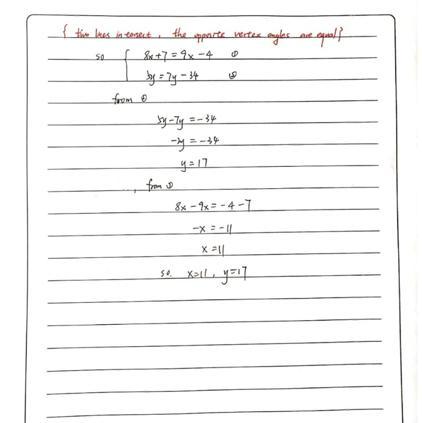 { two lines intersect, the opposite vertex angles are equal }
so { 8x+7=9x-4 ①
5y=7y-34 ②
from ②
5y-7y=-34
-2y=-34
y=17
, from ①
8x-9x=-4-7
-x=-11
x=11
so. x=11, y=17